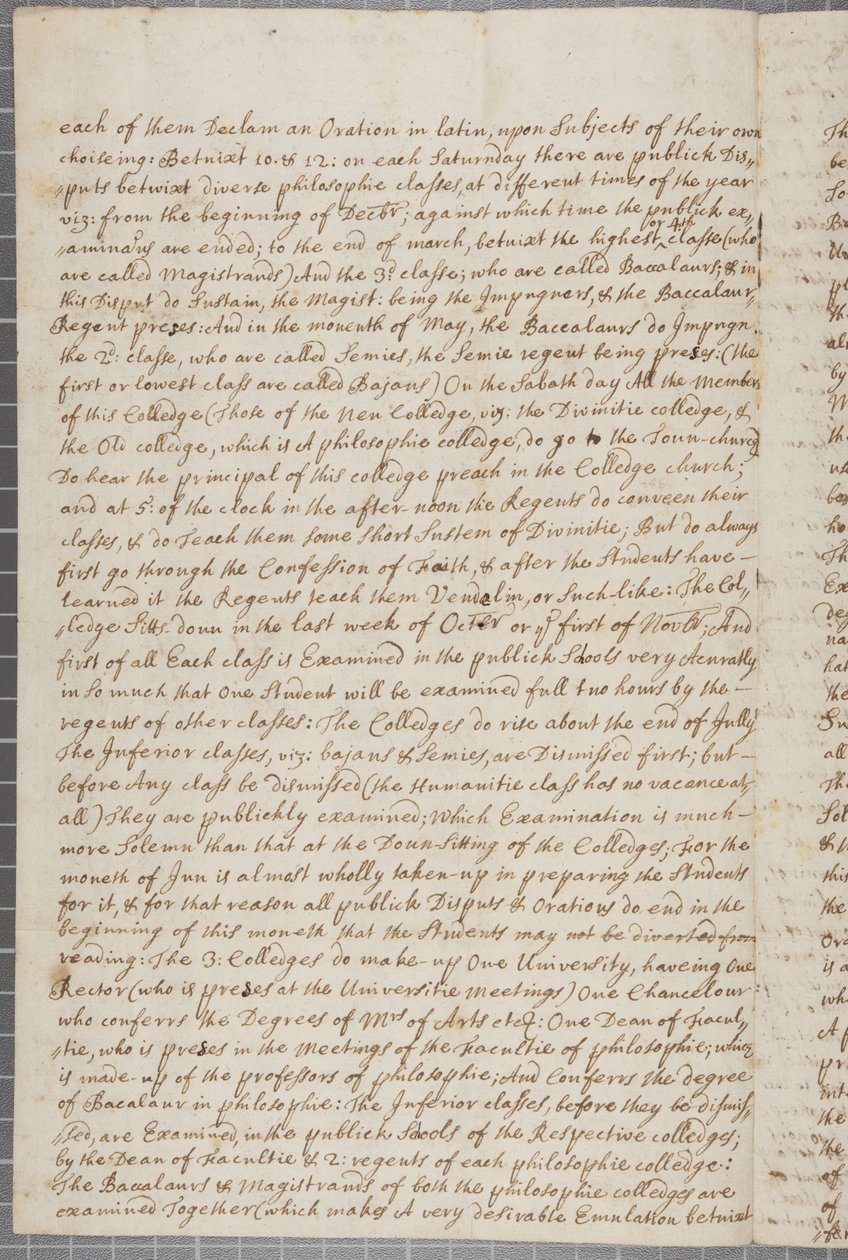 each of them Declam an Oration in latin, upon Subjects of their own
choiseing: Betuixt 10. & 12: on each Saturnday there are publick Dis„
„puts betwixt diverse philosophie classes, at different times of the year
viz: from the beginning of Decbr; against which time the publick ex„
„aminaons are ended; to the end of march, betuixt the highest or 4th classe (who
are called Magistrands) And the 3d. classe; who are called Baccalaurs; & in
this Disput do Sustain, the Magist: being the Impugners, & the Baccalaur„
Regent preses: And in the moneth of May, the Baccalaurs do Impugn
the 2d: classe, who are called Semies, the Semie regent being preses: (the
first or lowest class are called Bajans) On the Sabath day All the Members
of this Colledge (Those of the New Colledge, viz: the Divinitie colledge, &
the Old colledge, which is A philosophie colledge, do go to the Toun-church)
Do hear the principal of this colledge preach in the Colledge church;
and at 5: of the clock in the after-noon the Regents do conveen their
classes, & do Teach them some short Sustem of Divinitie; But do always
first go through the Confession of Faith, & after the Students have —
learned it the Regents teach them Vendalin, or Such-like: The Col„
„ledge Sitts-doun in the last week of Octer or ye first of Novbr; And
first of all Each class is Examined in the publick Schools very Acuratly
in so much that One Student will be examined full two hours by the —
regents of other classes: The Colledges do rise about the end of Jully
The Inferior classes, viz: bajans & Semies, are Dismissed first; but —
before Any class be dismissed (the Humanitie class has no vacance at„
all) They are publickly examined; Which Examination is much —
more Solemn than that at the Doun-Sitting of the Colledges; For the
moneth of Jun is almost wholly taken-up in preparing the Students
for it, & for that reason all publick Disputs & Orations do end in the
beginning of this moneth that the Students may not be diverted from
reading: The 3: Colledges do make-up One University, haveing One
Rector (who is preses at the Universitie Meetings) One Chancelour
who conferrs the Degrees of Mrs of Arts etc: One Dean of Facul„
„tie, who is preses in the Meetings of the Facultie of philosophie; which
is made-up of the professors of philosophie; And Conferrs the degree
of Bacalaur in philosophie: The Inferior classes, before they be dismis„
„sed, are Examined, in the publick Schools of the Respective colledges;
by the Dean of Facultie & 2: regents of each philosophie colledge:
The Baccalaurs & Magistrands of both the philosophie colledges are
examined Together (which makes A very desirable Emulation betuixt